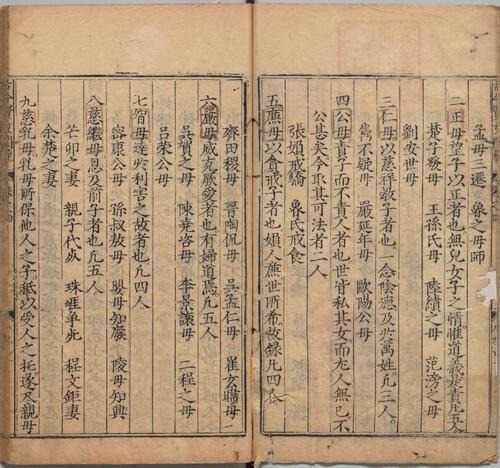 孟母三遷 魯之母師
二正母望子以正者也無兒女子之情惟道義是責凡五人
楚子發母 王孫氏母 陸績之母 范滂之母
劉安世母
三仁母以慈祥教子者也一念陰德及於萬姓凡三人
雋不疑母 嚴延年母 歐陽公母
四公母責子而不責人者也世皆私其女而尤人無已不
公甚矣今取其可法者二人
張媍戒驕 魯氏戒食
五廉母以貪戒子者也媍人廉世所希故錄凡四
齊田稷母 晉陶侃母 吳孟仁母 崔玄暐母
六嚴母威克厥愛者也有婦道焉凡五人
吳賀之母 陳堯咨母 李景讓母 二程之母
呂榮公母
七智母達於利害之故者也凡四人
密康公母 孫叔敖母 嬰母知廢 陵母知興
八慈繼母恩及前子者也凡五人
芒卯之妻 親子代死 珠崖爭死 程文鉅妻
余楚之妻
九慈乳母乳母所保他人之子秪以受人之托遂及親母